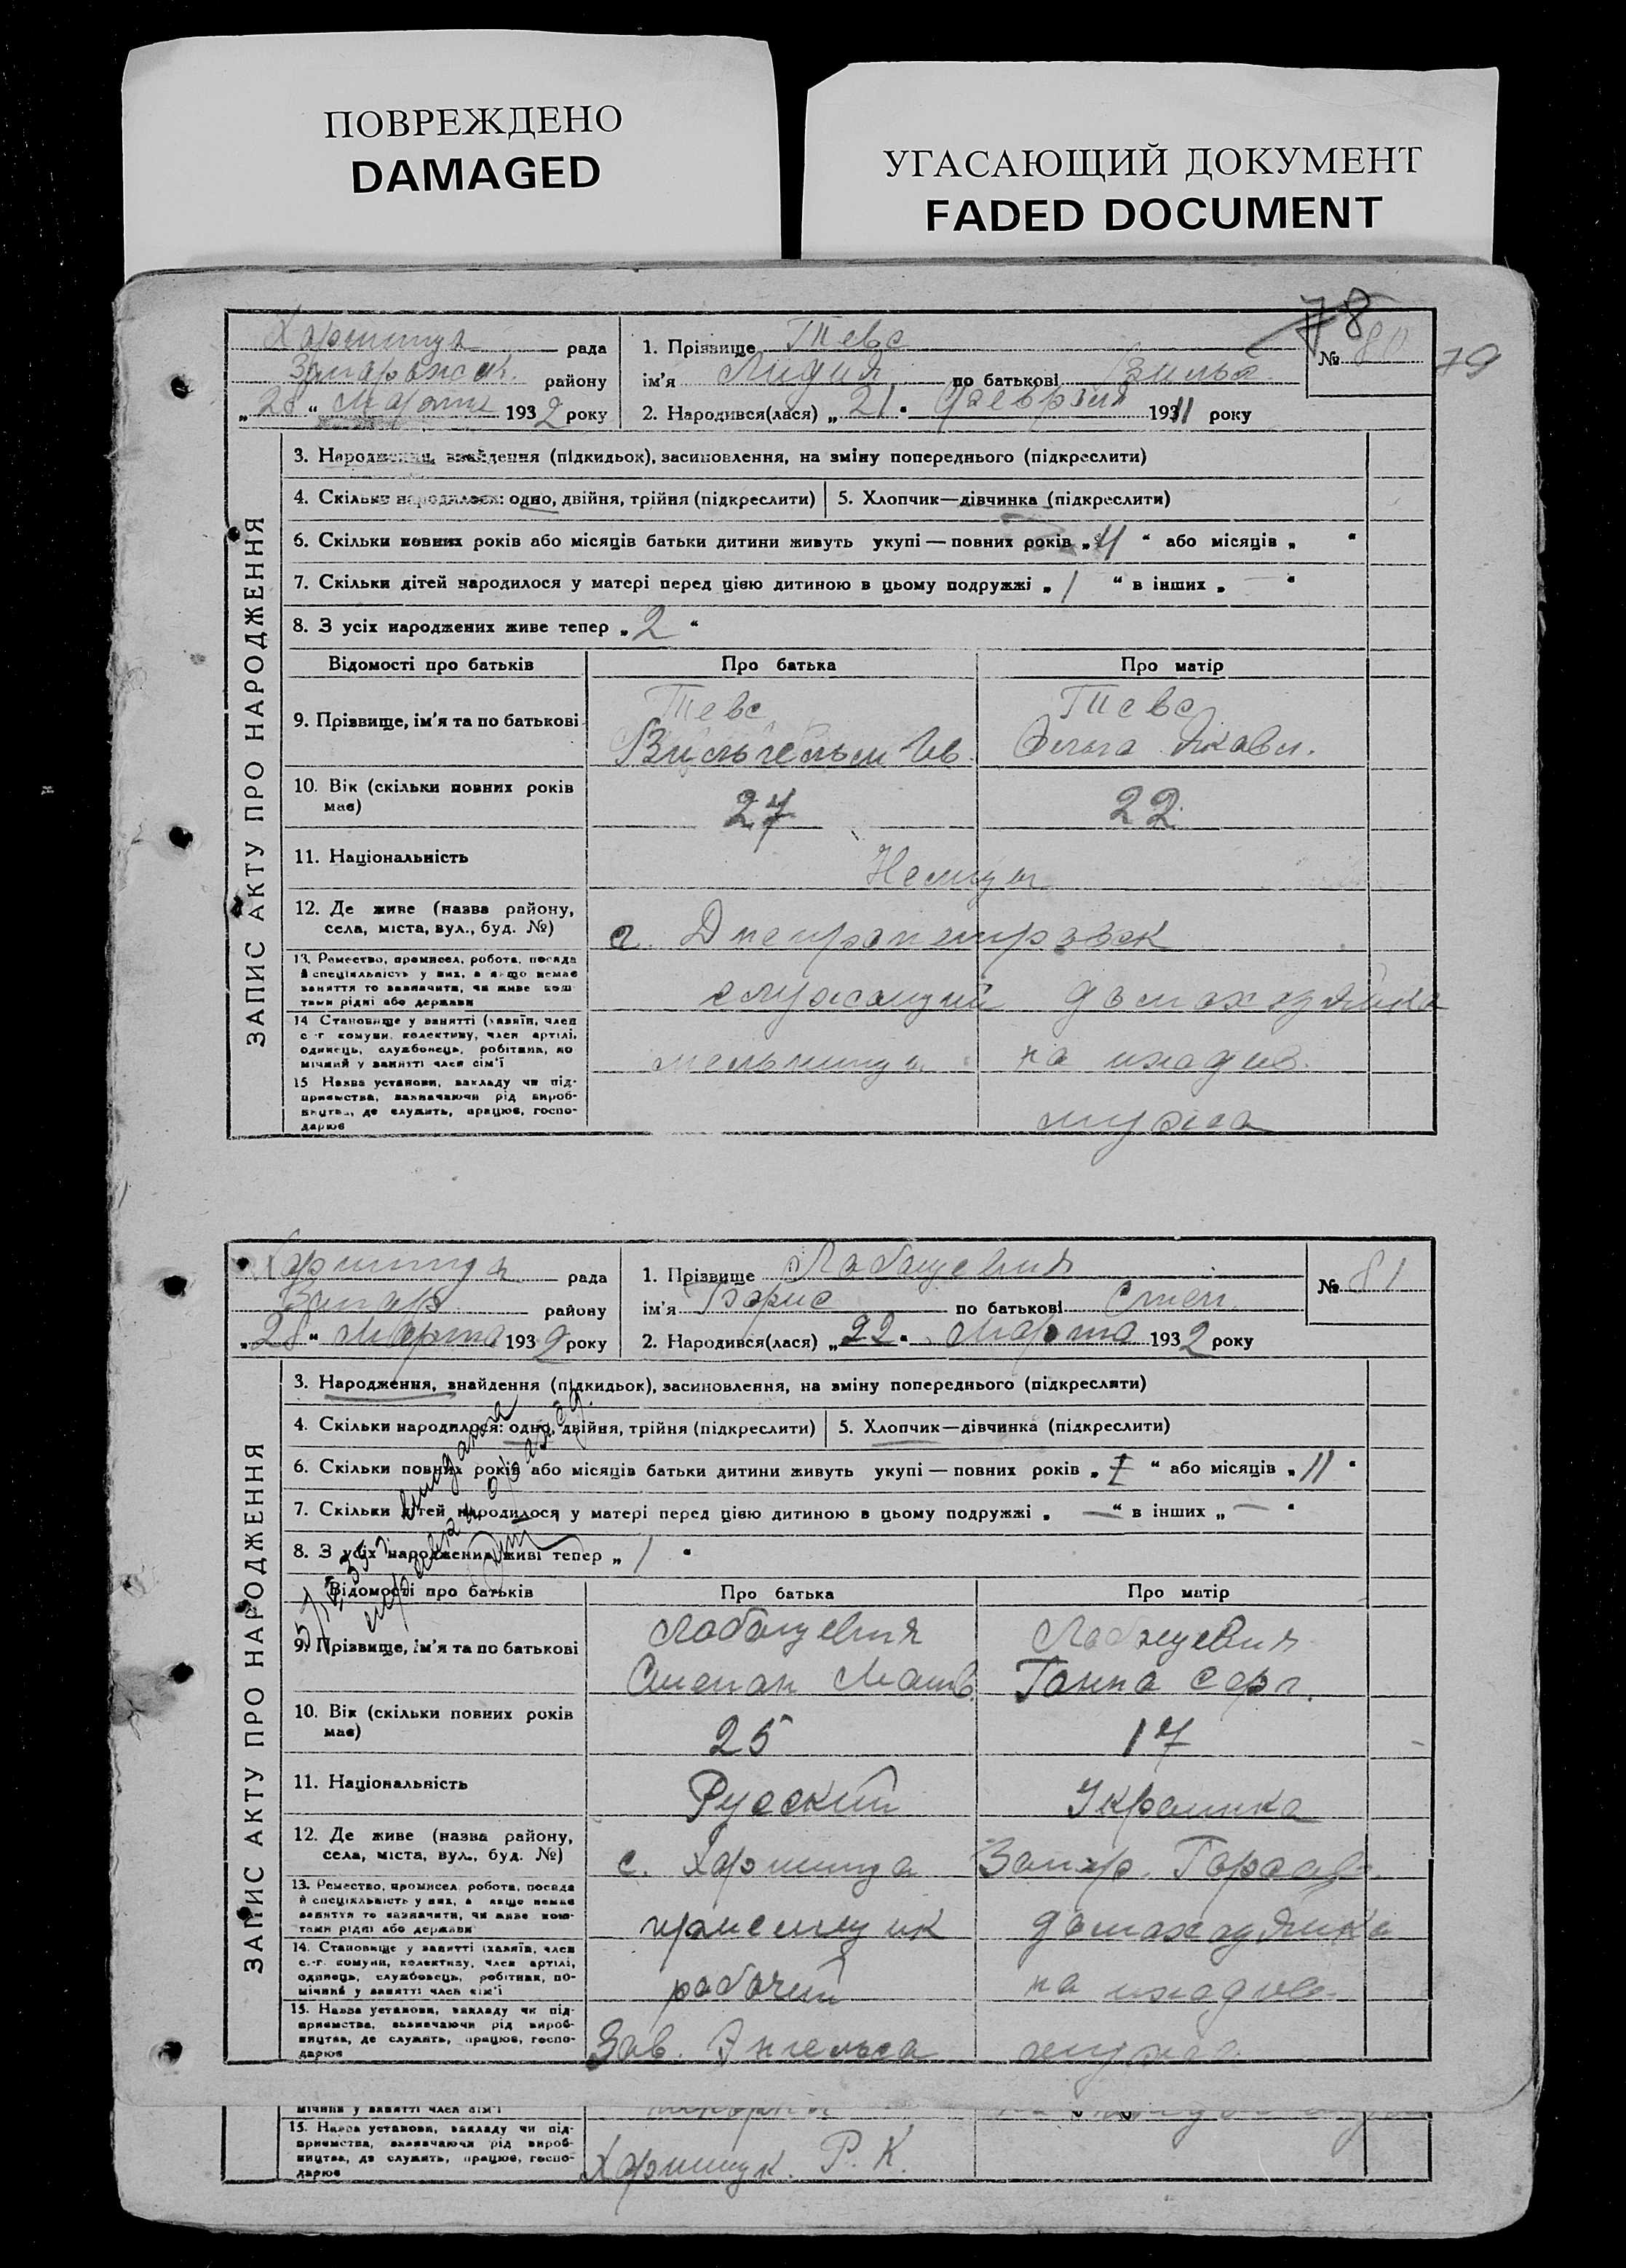 ПОВРЕЖДЕНО
DAMAGED
УГАСАЮЩИЙ ДОКУМЕНТ
FADED DOCUMENT
78
79
Хортица рада
Запорожск. району
„28“ Марта 1932 року
1. Прізвище Тевс
ім'я Лидия по батькові Вильг.
2. Народився(лася) „21“ Февраля 1931 року
№ 80
ЗАПИС АКТУ ПРО НАРОДЖЕННЯ
3. Народження, знайдення (підкидьок), засиновлення, на зміну попереднього (підкреслити)
4. Скільки народилося: одно, двійня, трійня (підкреслити) 5. Хлопчик—дівчинка (підкреслити)
6. Скільки повних років або місяців батьки дитини живуть укупі — повних років „4“ або місяців „ “
7. Скільки дітей народилося у матері перед цією дитиною в цьому подружжі „1“ в інших „—“
8. З усіх народжених живе тепер „2“
Відомості про батьків Про батька Про матір
9. Прізвище, ім'я та по батькові
Тевс Тевс
Вильгельм Ив. Ольга Яковл.
10. Вік (скільки повних років має) 27 22
11. Національність Немцы
12. Де живе (назва району, села, міста, вул., буд. №) г. Днепропетровск
13. Ремество, промисел, робота, посада й спеціяльність у них, а якщо немає заняття то зазначити, чи живе коштами рідні або держави
служащий домохозяйка
14 Становище у занятті (хазяїн, член с.-г. комуни, колективу, член артілі, одинець, службовець, робітник, помічний у занятті член сім'ї
мельница на иждив.
15 Назва установи, закладу чи підприємства, зазначаючи рід виробництва, де служить, працює, господарює
мужа
Хортица рада
Запор. району
„28“ Марта 1932 року
1. Прізвище Лабацевич
ім'я Борис по батькові Степ.
2. Народився(лася) „22“ Марта 1932 року
№ 81
ЗАПИС АКТУ ПРО НАРОДЖЕННЯ
3. Народження, знайдення (підкидьок), засиновлення, на зміну попереднього (підкреслити)
4. Скільки народилося: одно, двійня, трійня (підкреслити) 5. Хлопчик—дівчинка (підкреслити)
6. Скільки повних років або місяців батьки дитини живуть укупі — повних років „ “ або місяців „11“
7. Скільки дітей народилося у матері перед цією дитиною в цьому подружжі „—“ в інших „—“
8. З усіх народжених живі тепер „1“
Відомості про батьків Про батька Про матір
9. Прізвище, ім'я та по батькові
Лабацевич Лабацевич
Степан Матв. Ганна Серг.
10. Вік (скільки повних років має) 25 17
11. Національність Русский Украинка
12. Де живе (назва району, села, міста, вул., буд. №) с. Хортица Запор.
13. Ремество, промисел, робота, посада й спеціяльність у них, а якщо немає заняття то зазначити, чи живе коштами рідні або держави
приемщик домохозяйка
14. Становище у занятті (хазяїн, член с.-г. комуни, колективу, член артілі, одинець, службовець, робітник, помічний у занятті член сім'ї
рабочий на иждив.
15. Назва установи, закладу чи підприємства, зазначаючи рід виробництва, де служить, працює, господарює
Зав. Энгельса мужа
мічний у занятті член сім'ї
15. Назва установи, закладу чи підприємства, зазначаючи рід виробництва, де служить, працює, господарює
Хортицк. Р. К.